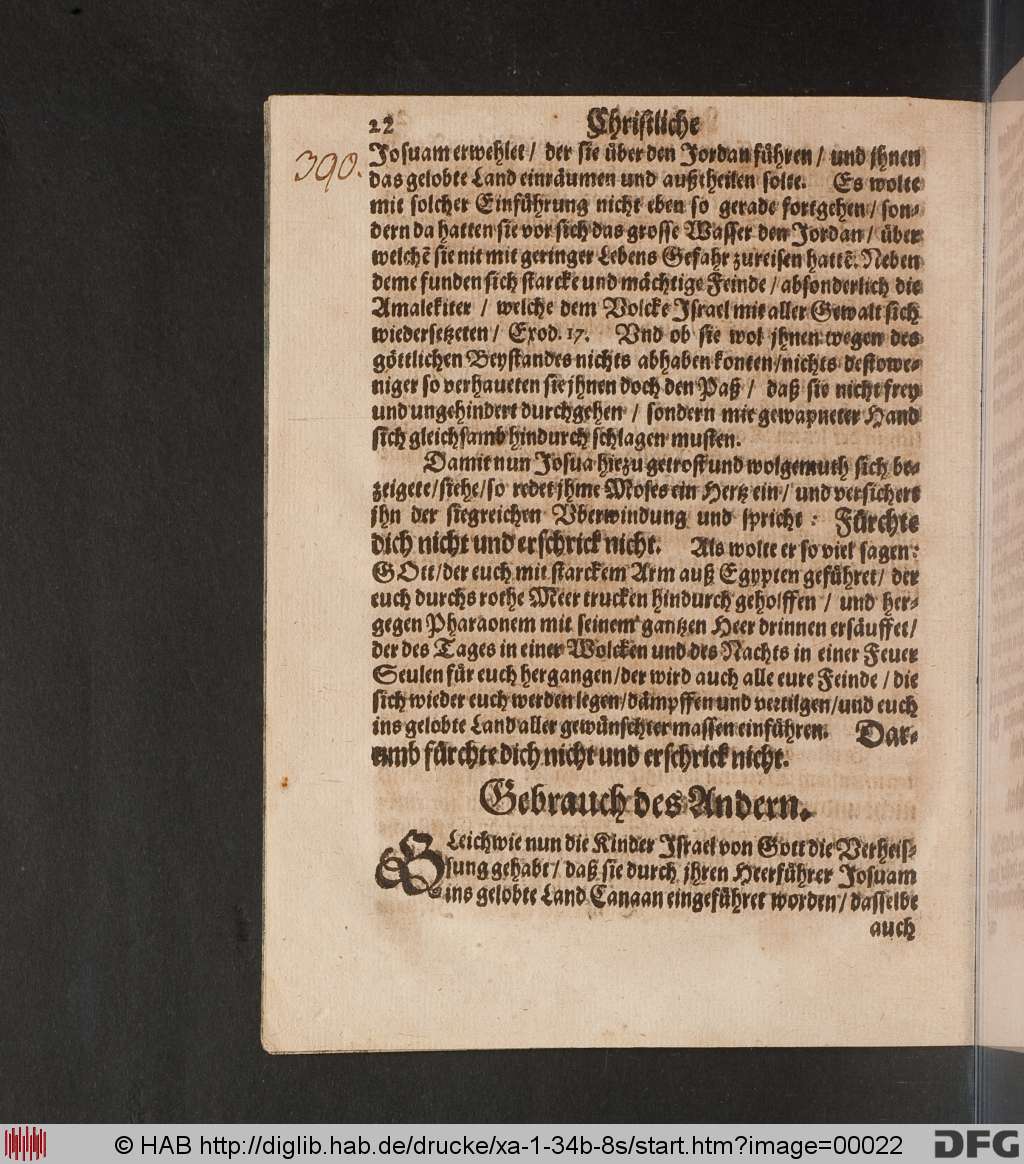 22 Christliche
390.
Josuam erwehlet / der sie über den Jordan führen / und jhnen
das gelobte Land einräumen und außtheilen solte. Es wolte
mit solcher Einführung nicht eben so gerade fortgehen / son-
dern da hatten sie vor sich das grosse Wasser den Jordan / über
welchẽ sie nit mit geringer Lebens Gefahr zureisen hattẽ. Neben
deme funden sich starcke und mächtige Feinde / absonderlich die
Amalekiter / welche dem Volcke Israel mit aller Gewalt sich
wiedersetzeten / Exod. 17. Vnd ob sie wol jhnen wegen des
göttlichen Beystandes nichts abhaben konten / nichts destowe-
niger so verhaueten sie jhnen doch den Paß / daß sie nicht frey
und ungehindert durchgehen / sondern mit gewapneter Hand
sich gleichsamb hindurch schlagen musten.
Damit nun Josua hiezu getrost und wolgemuth sich be-
zeigete / siehe / so redet jhme Moses ein Hertz ein / und versichert
jhn der siegreichen Vberwindung und spricht : Fürchte
dich nicht und erschrick nicht. Als wolte er so viel sagen:
GOtt / der euch mit starckem Arm auß Egypten geführet / der
euch durchs rothe Meer trucken hindurch geholffen / und her-
gegen Pharaonem mit seinem gantzen Heer drinnen ersäuffet /
der des Tages in einer Wolcken und des Nachts in einer Feuer
Seulen für euch hergangen / der wird auch alle eure Feinde / die
sich wieder euch werden legen / dämpffen und vertilgen / und euch
ins gelobte Land aller gewünschter massen einführen. Dar-
umb fürchte dich nicht und erschrick nicht.
Gebrauch des Andern.
GLeichwie nun die Kinder Israel von Gott die Verheis-
sung gehabt / daß sie durch jhren Heerführer Josuam
ins gelobte Land Canaan eingeführet worden / dasselbe
auch
© HAB http://diglib.hab.de/drucke/xa-1-34b-8s/start.htm?image=00022
DFG